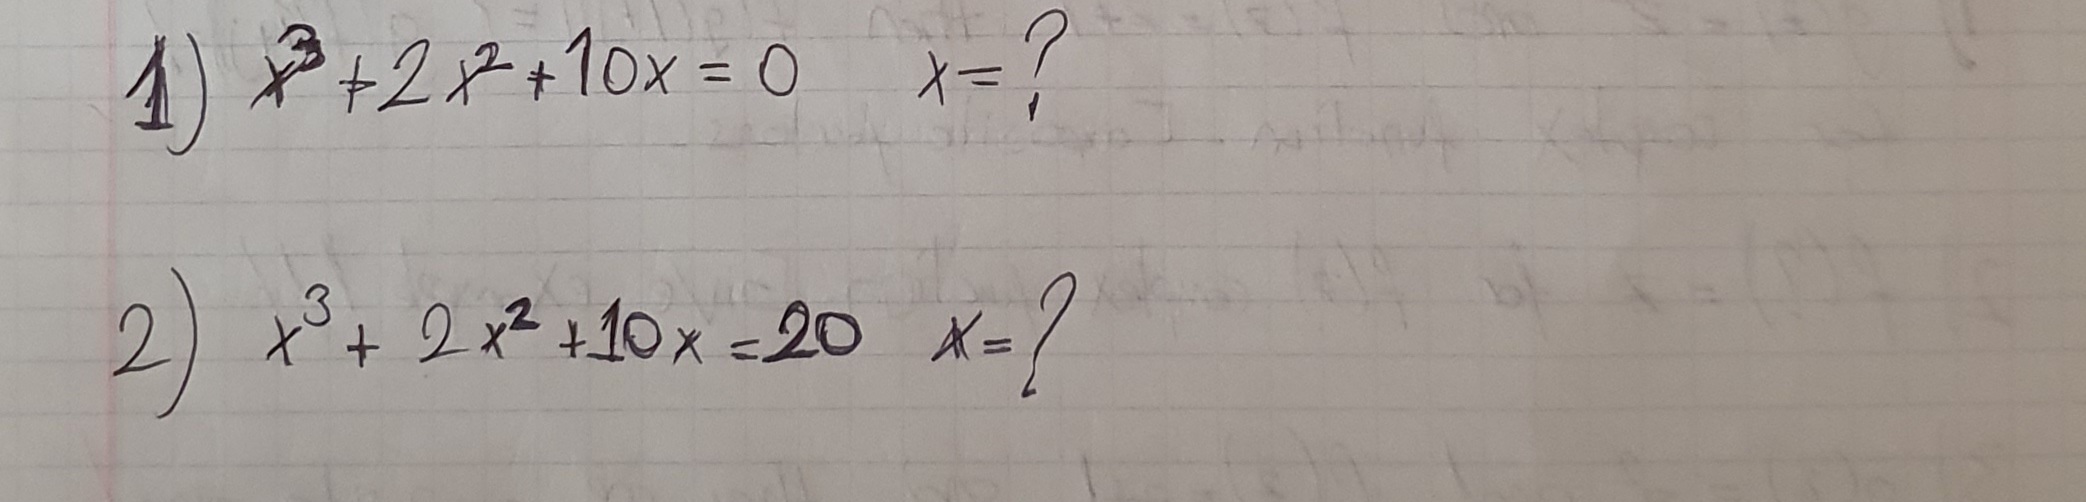 1) x³+2x²+10x=0 x=?
2) x³+2x²+10x=20 x=?